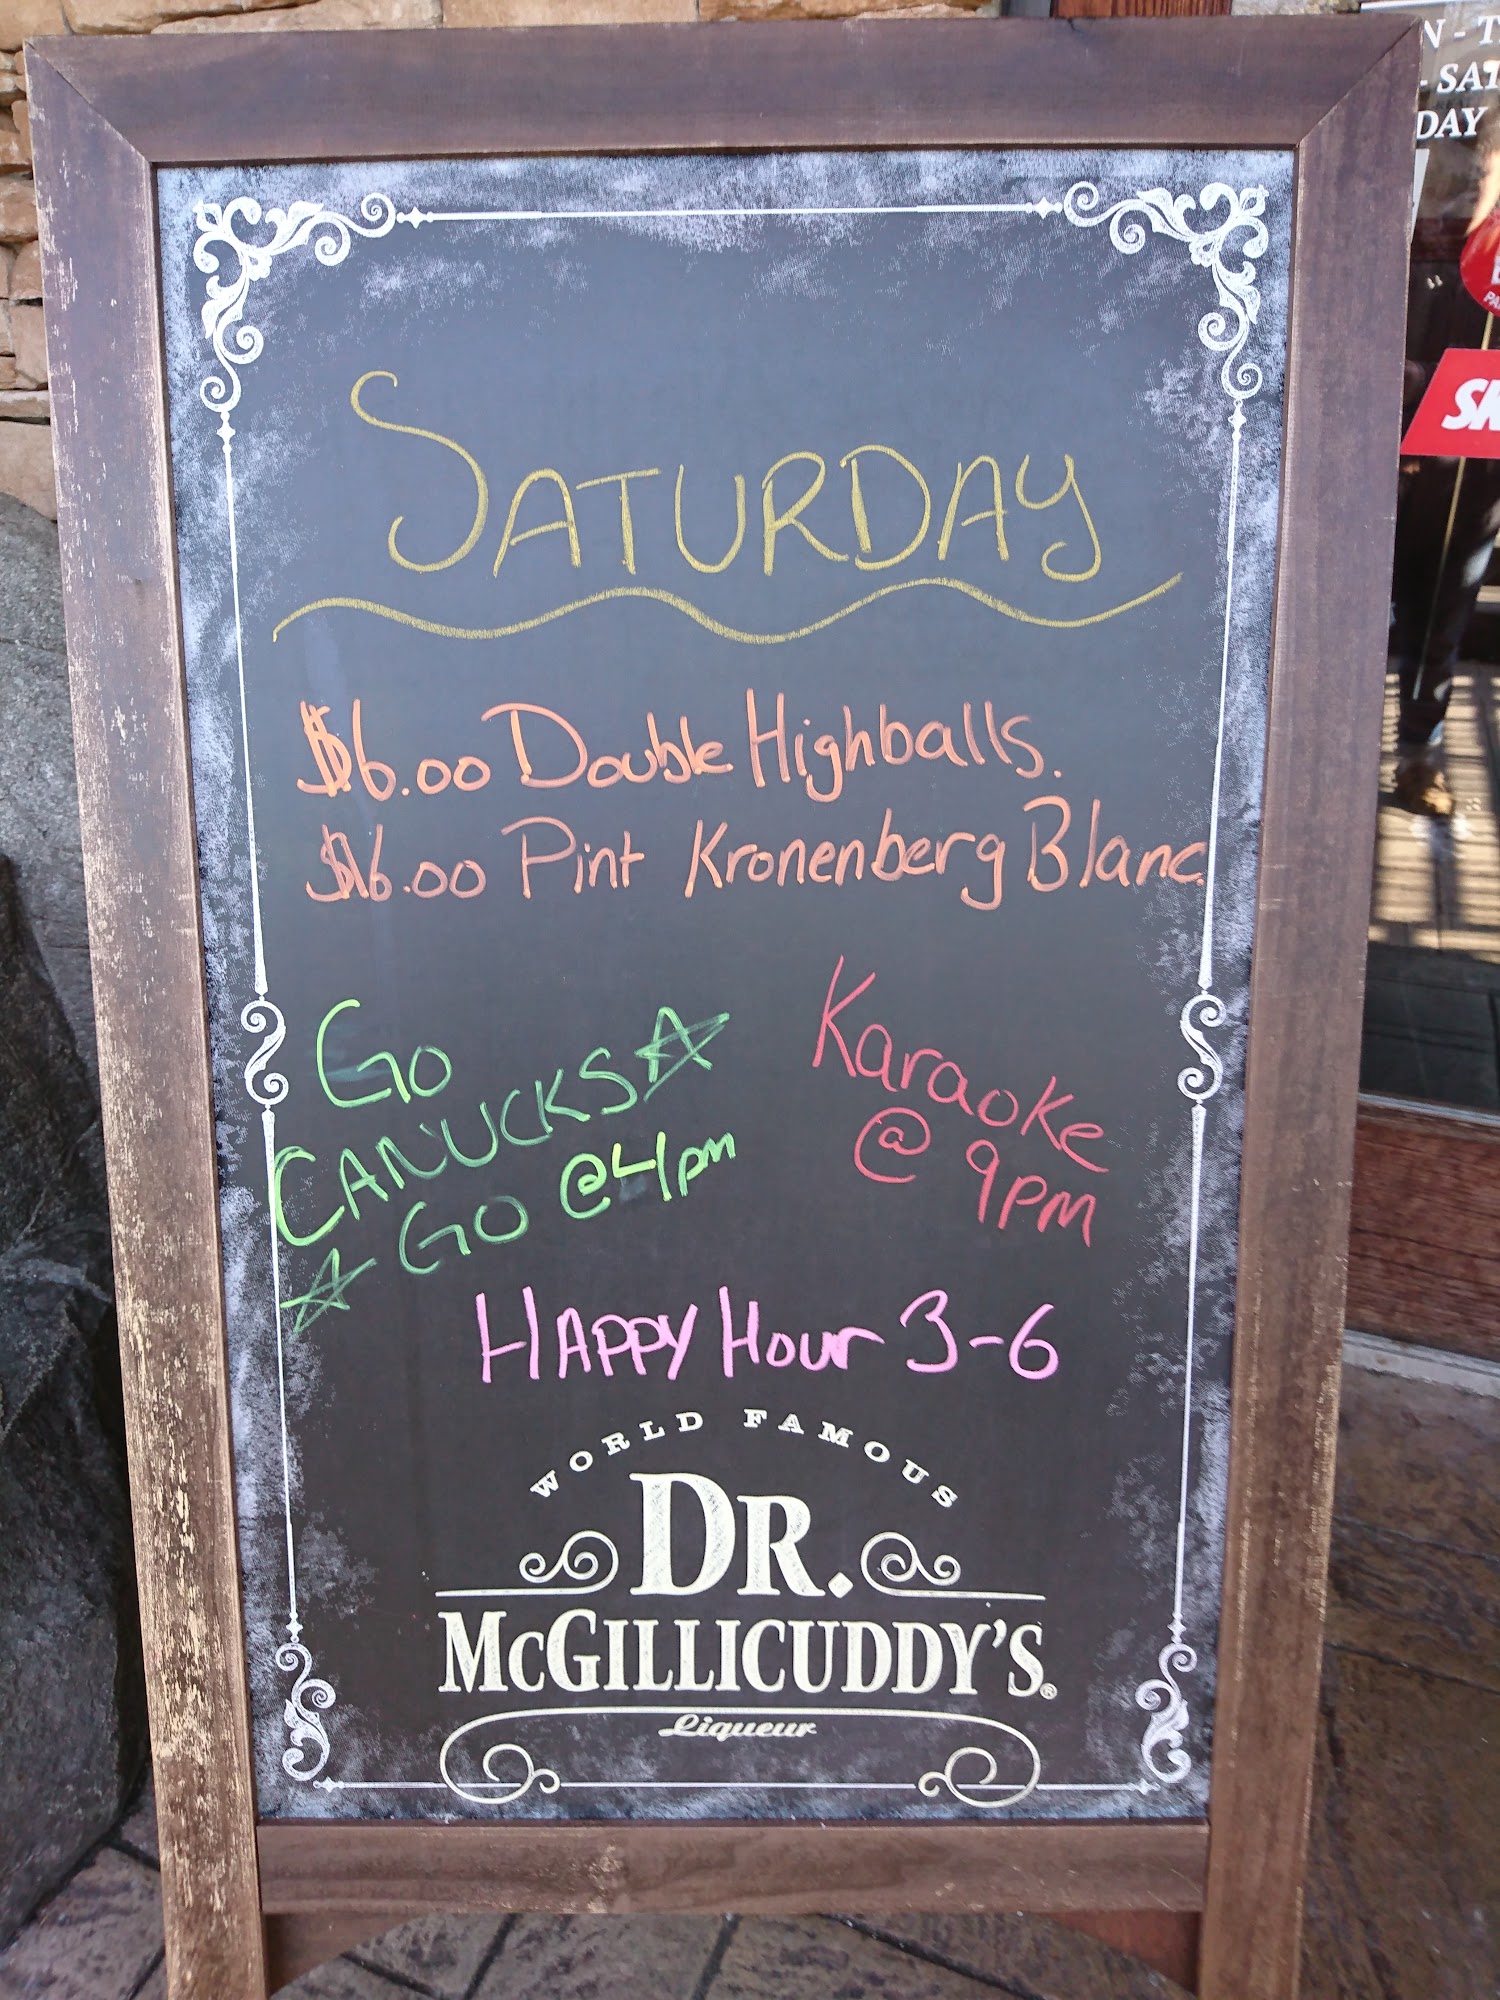 SATURDAY
$6.00 Double Highballs.
$6.00 Pint Kronenberg Blanc
Go
CANUCKS
GO @4pm
Karaoke
@ 9pm
HAPPY Hour 3-6
WORLD FAMOUS
DR.
MCGILLICUDDY'S®
Liqueur
N - T
- SAT
DAY
SK